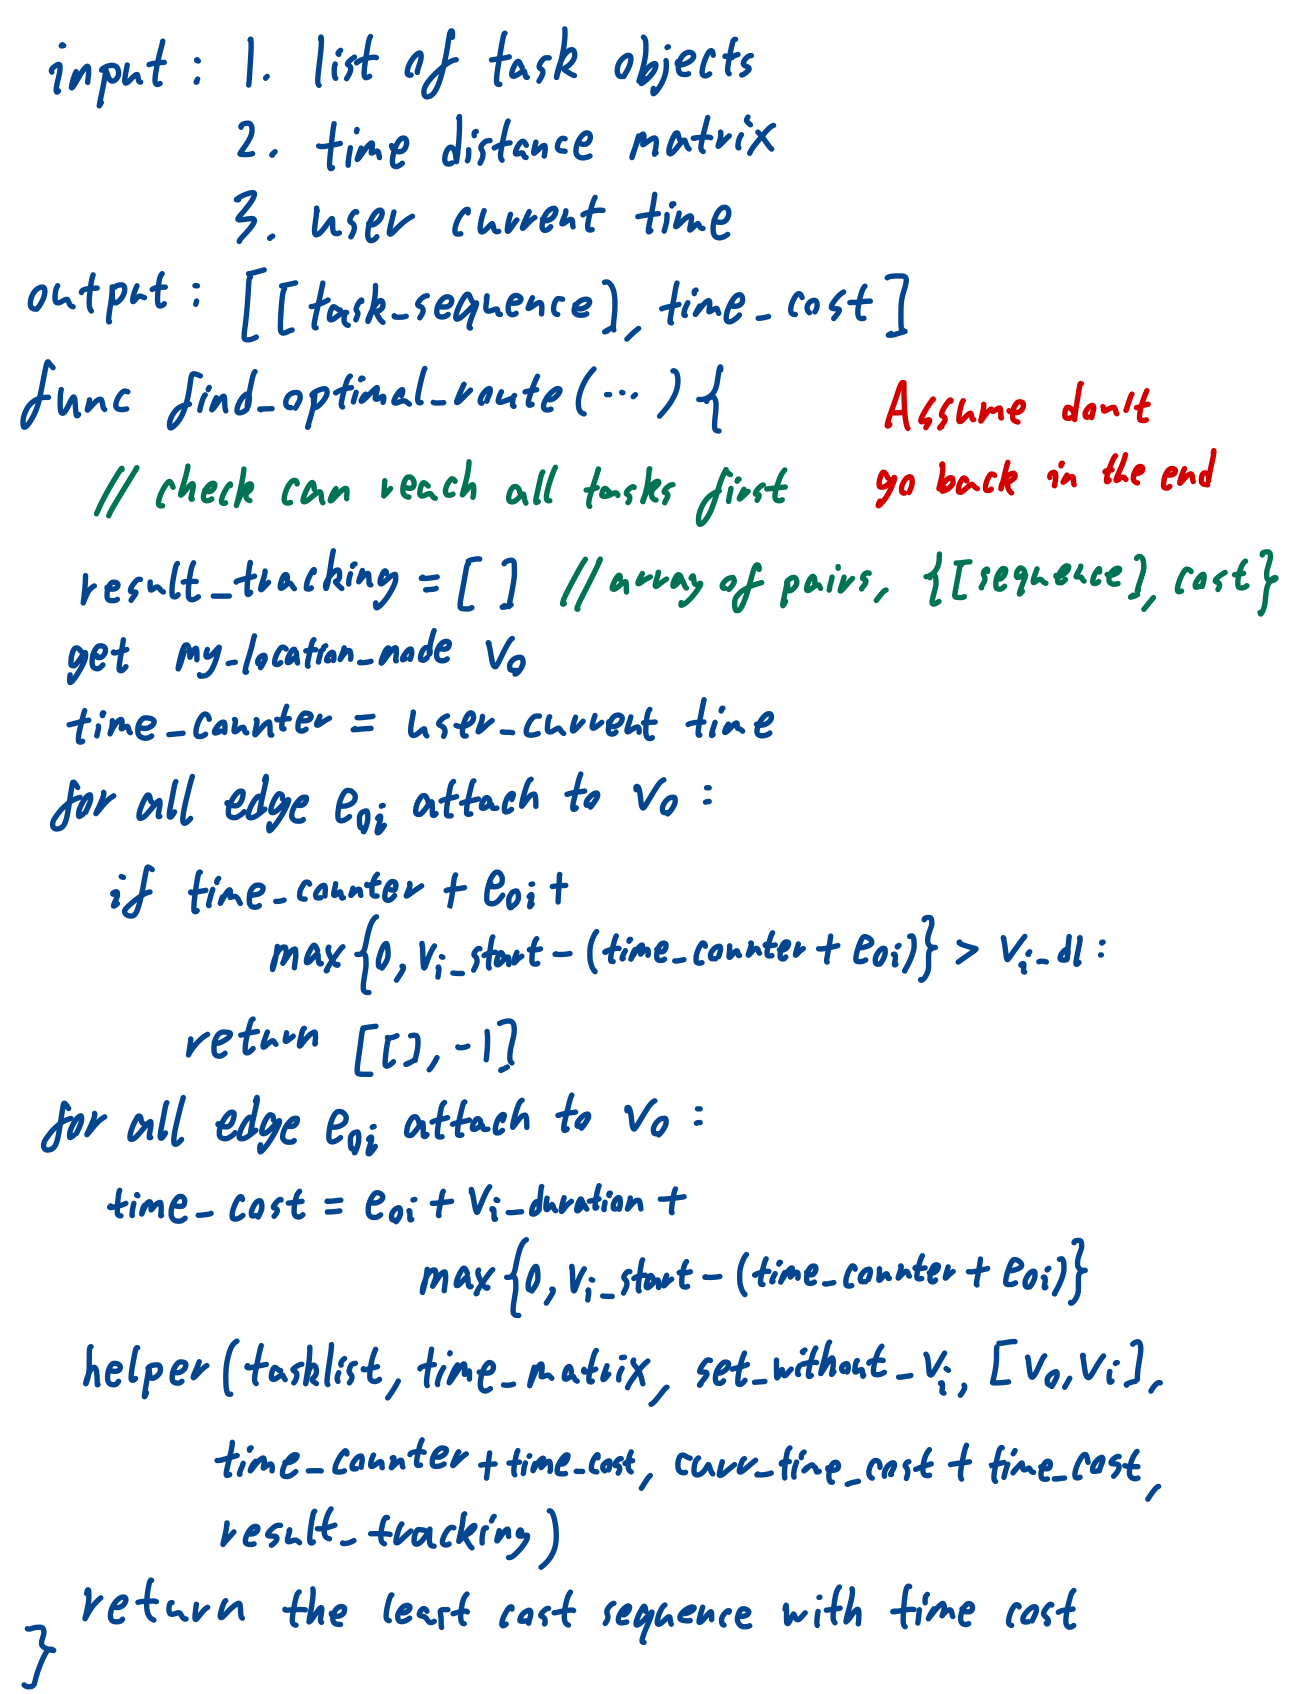 input : 1. list of task objects
2. time distance matrix
3. user current time
output : [[task_sequence], time_cost]
func find_optimal_route(...){
Assume don't
go back in the end
// check can reach all tasks first
result_tracking = [] // array of pairs, {[sequence], cost}
get my_location_node v₀
time_counter = user_current time
for all edge e₀ᵢ attach to v₀ :
if time_counter + e₀ᵢ +
max{0, vᵢ_start - (time_counter + e₀ᵢ)} > vᵢ_dl :
return [[], -1]
for all edge e₀ᵢ attach to v₀ :
time_cost = e₀ᵢ + vᵢ_duration +
max{0, vᵢ_start - (time_counter + e₀ᵢ)}
helper(tasklist, time_matrix, set_without_vᵢ, [v₀, vᵢ],
time_counter + time_cost, curr_time_cost + time_cost,
result_tracking)
return the least cost sequence with time cost
}